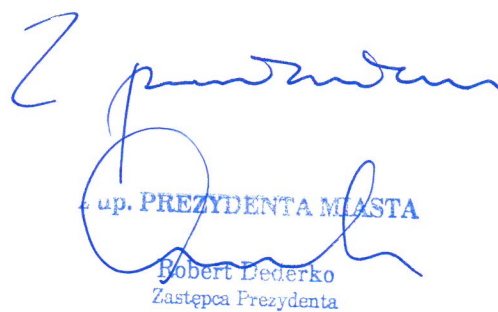 Z poważaniem
z up. PREZYDENTA MIASTA
Robert Dederko
Zastępca Prezydenta